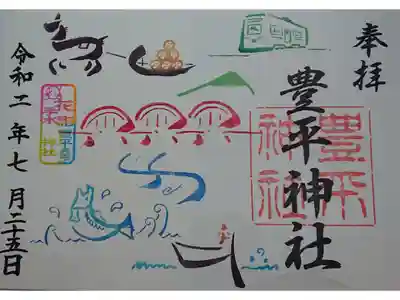 奉拝
豊平神社
豊平
神社
令和二年七月二十五日